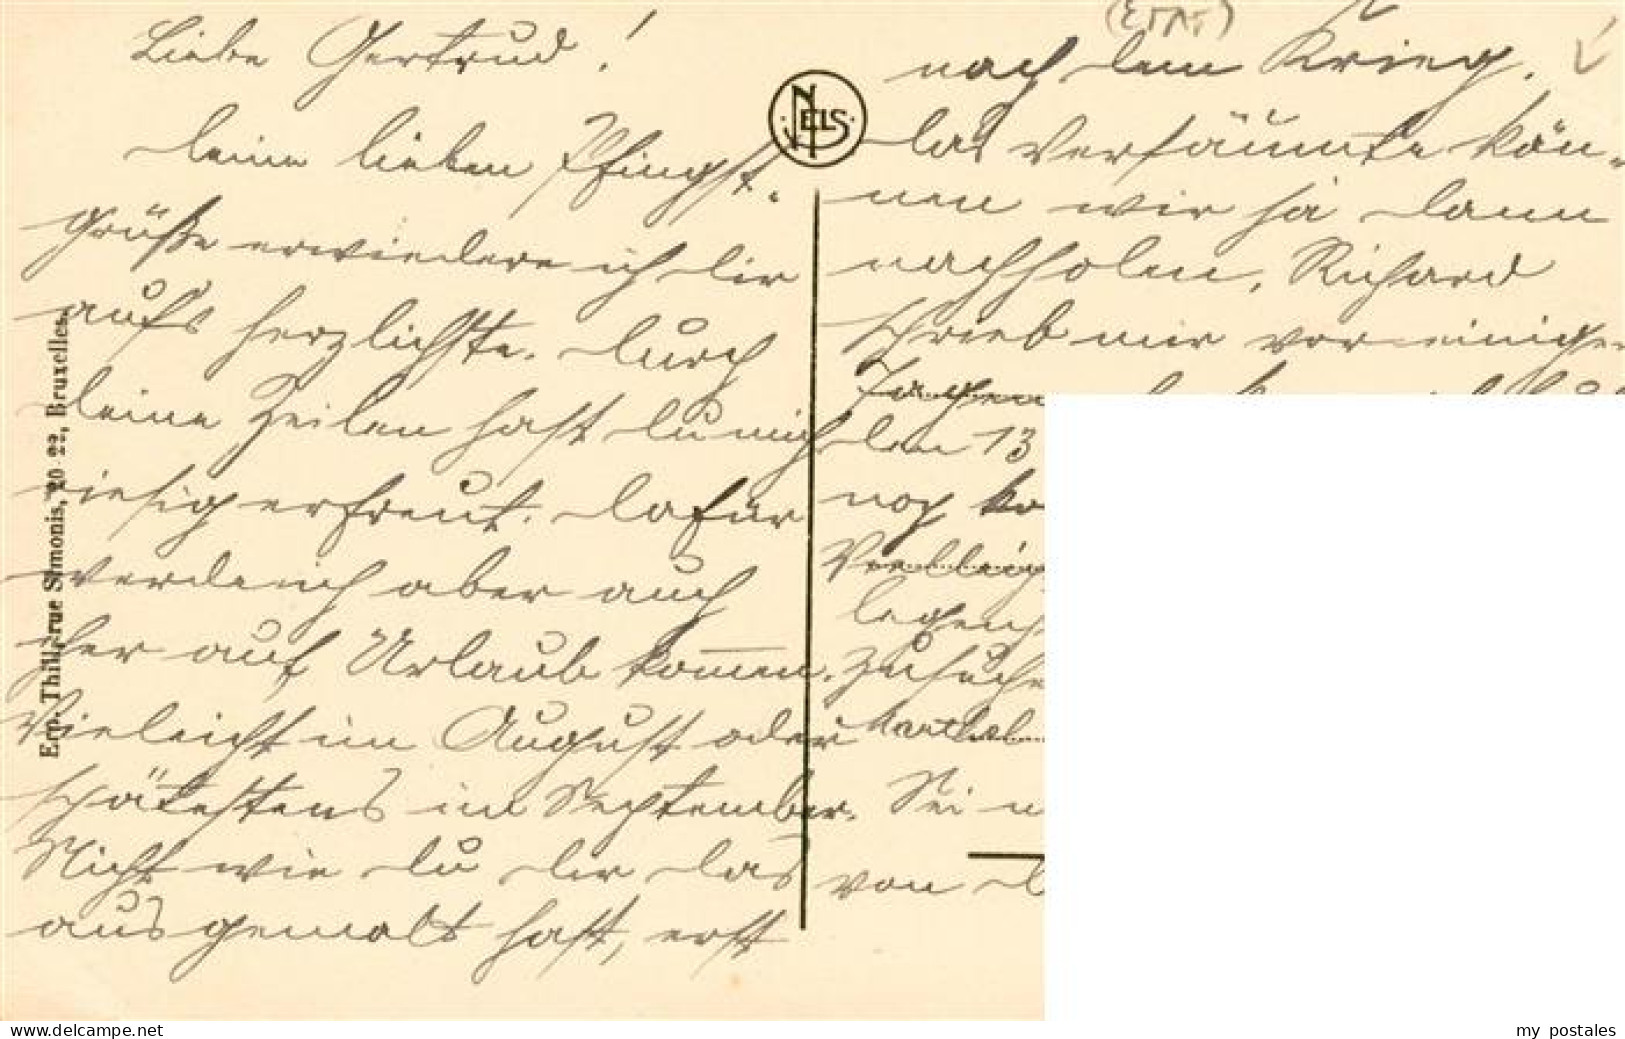 Liebe Gertrud!
deine lieben Pfingst-
grüße erwiedere ich dir
aufs herzlichste. Durch
deine Zeilen hast du mich
riesig erfreut. Dafür
werde ich aber auch
her auf Urlaub kommen.
Vieleicht im August oder
spätestens im September.
Nicht wie du dir das
ausgemalt hast, erst
nach dem Krieg.
das Versäumte kön-
nen wir ja dann
nachholen. Richard
schrieb mir vor einigen
Tagen
den 13
noch
legen
zusuche
Sei
von
NELS
Ern. Thill, rue Simonis, 20-22, Bruxelles.
www.delcampe.net
my postales